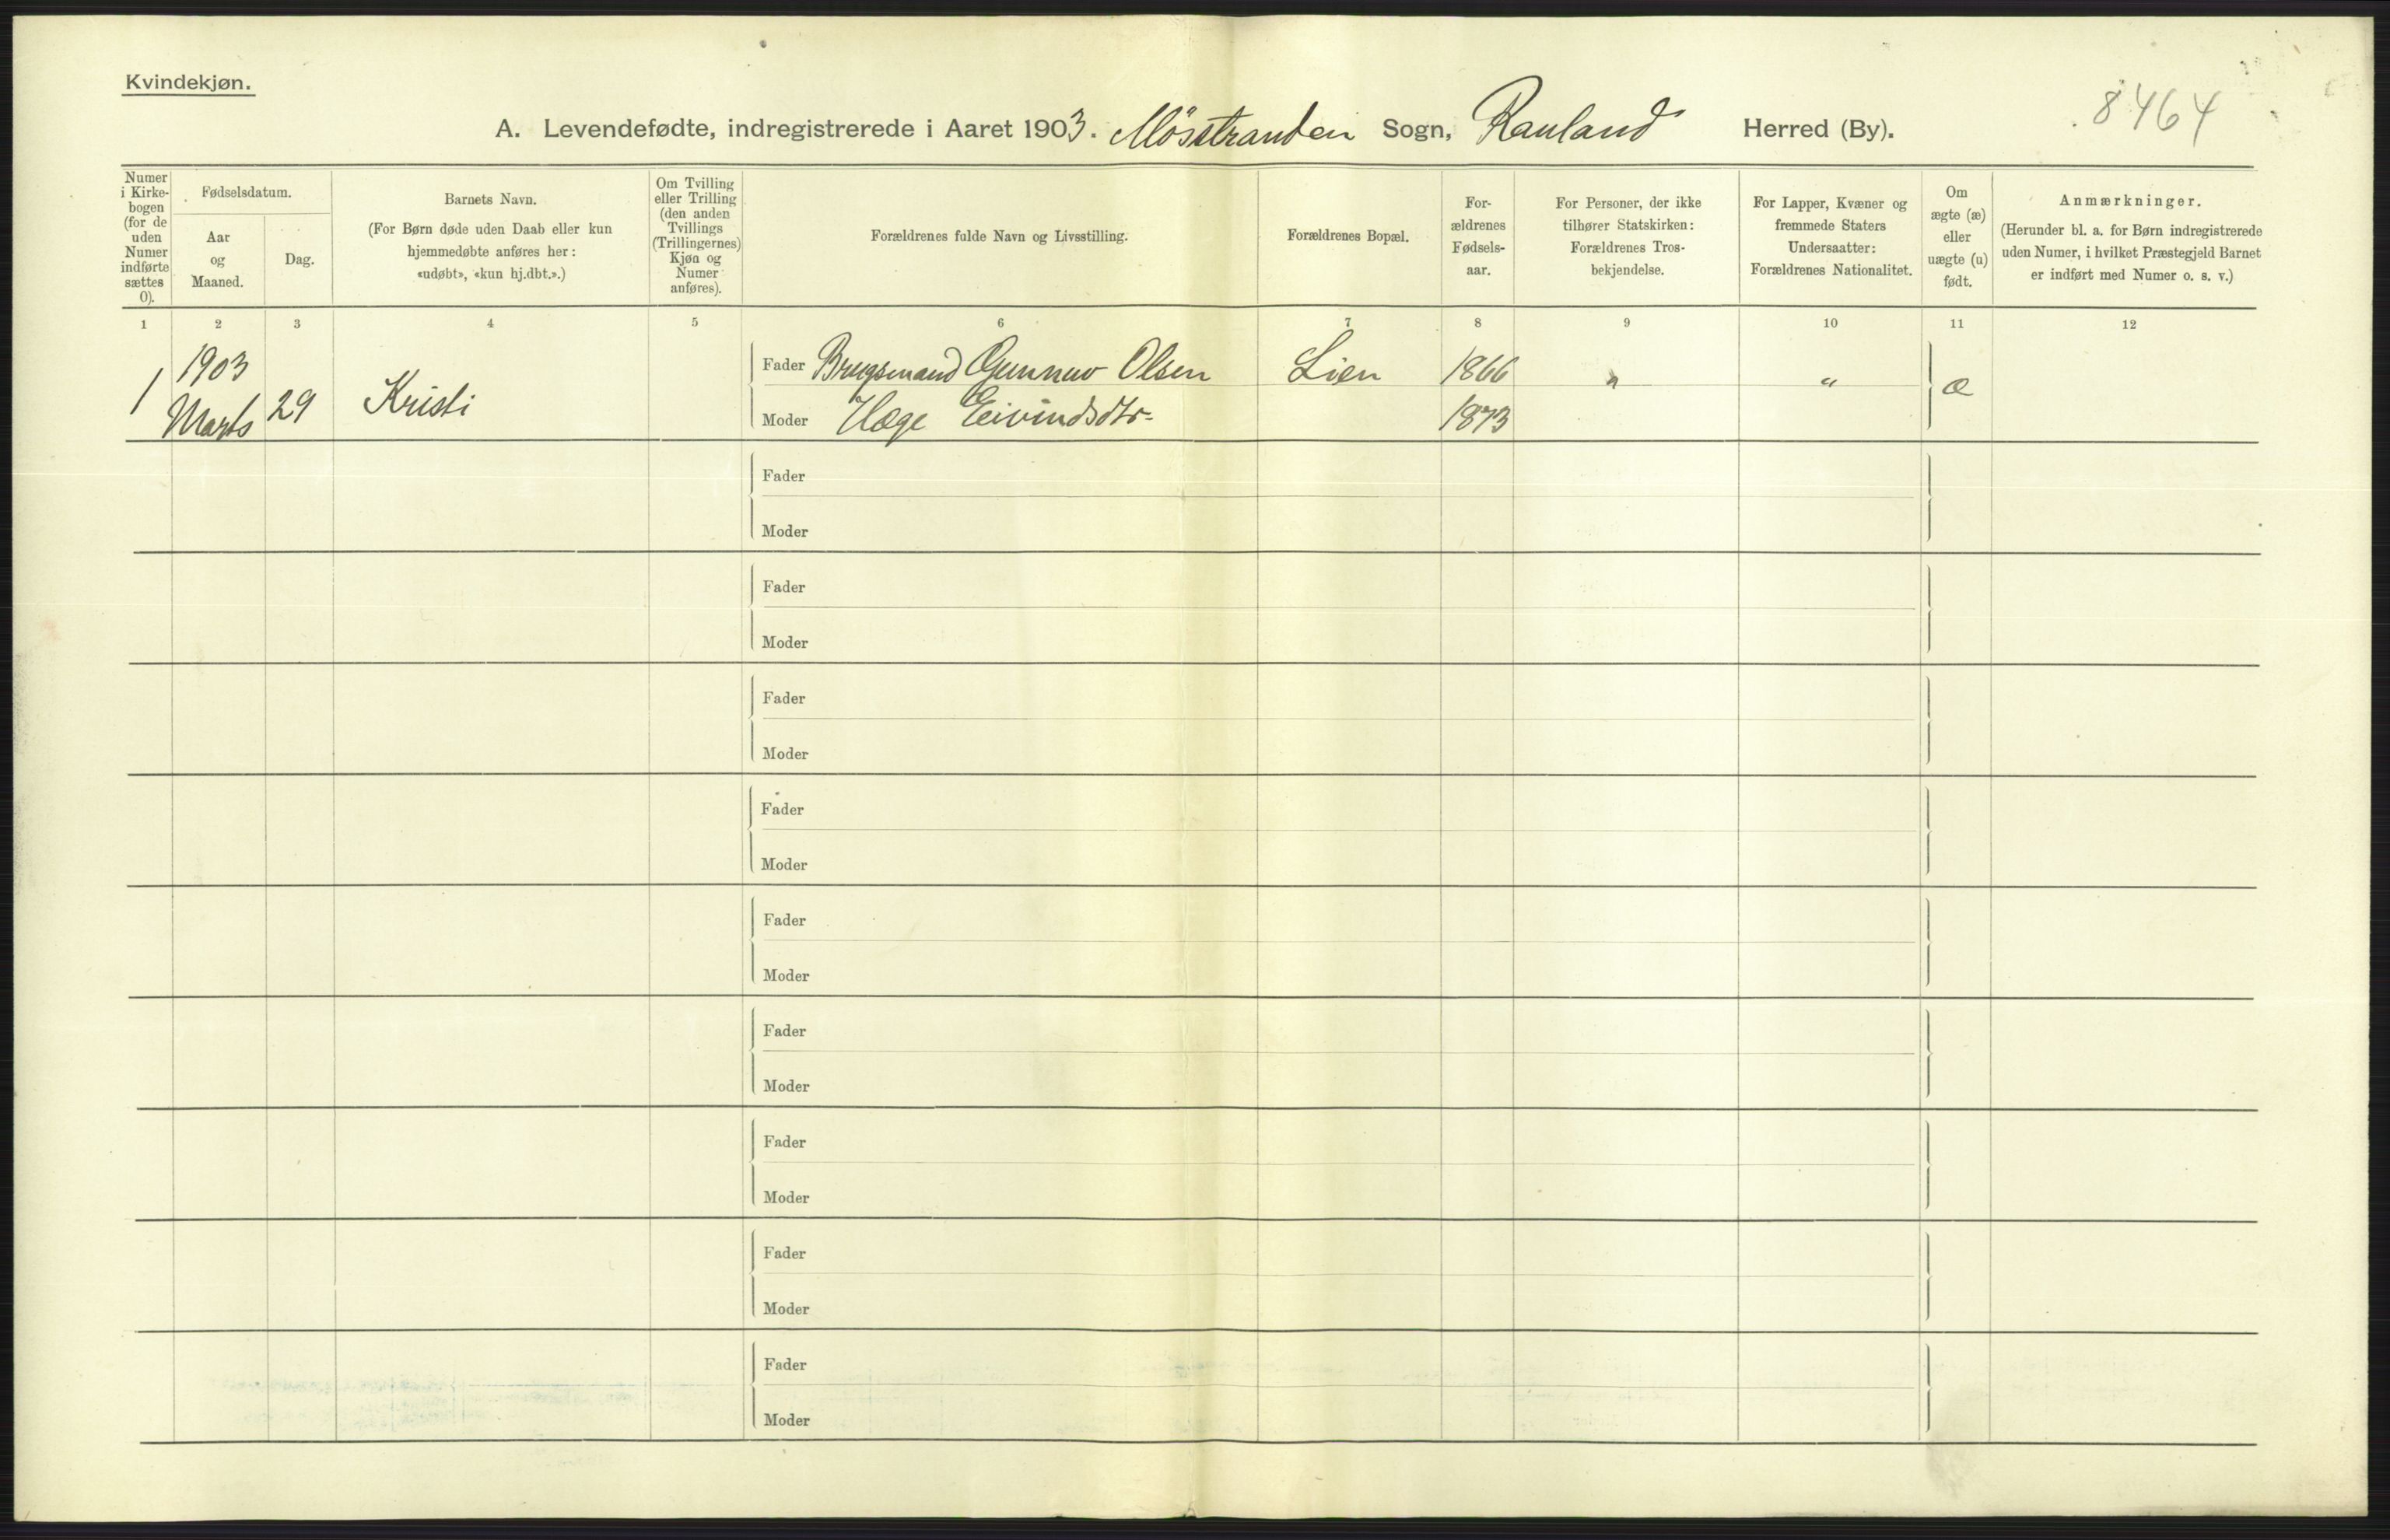 Kvindekjøn.
8464
A. Levendefødte, indregistrerede i Aaret 1903. Mösstranden Sogn, Rauland Herred (By).
Numer
i Kirke-
bogen
(for de
uden
Numer
indførte
sættes
0).
Fødselsdatum.
Aar
og
Maaned.
Dag.
Barnets Navn.
(For Børn døde uden Daab eller kun
hjemmedøbte anføres her:
«udøbt», «kun hj.dbt.».)
Om Tvilling
eller Trilling
(den anden
Tvillings
(Trillingernes)
Kjøn og
Numer
anføres).
Forældrenes fulde Navn og Livsstilling.
Forældrenes Bopæl.
For-
ældrenes
Fødsels-
aar.
For Personer, der ikke
tilhører Statskirken:
Forældrenes Tros-
bekjendelse.
For Lapper, Kvæner og
fremmede Staters
Undersaatter:
Forældrenes Nationalitet.
Om
ægte (æ)
eller
uægte (u)
født.
Anmærkninger.
(Herunder bl. a. for Børn indregistrerede
uden Numer, i hvilket Præstegjeld Barnet
er indført med Numer o. s. v.)
1 2 3 4 5 6 7 8 9 10 11 12
1 1903 Marts 29 Kristi
Fader Brugsmand Gunnuv Olsen Lien 1866 " " æ
Moder Hæge Eivindsdtr. 1873
Fader
Moder
Fader
Moder
Fader
Moder
Fader
Moder
Fader
Moder
Fader
Moder
Fader
Moder
Fader
Moder
Fader
Moder